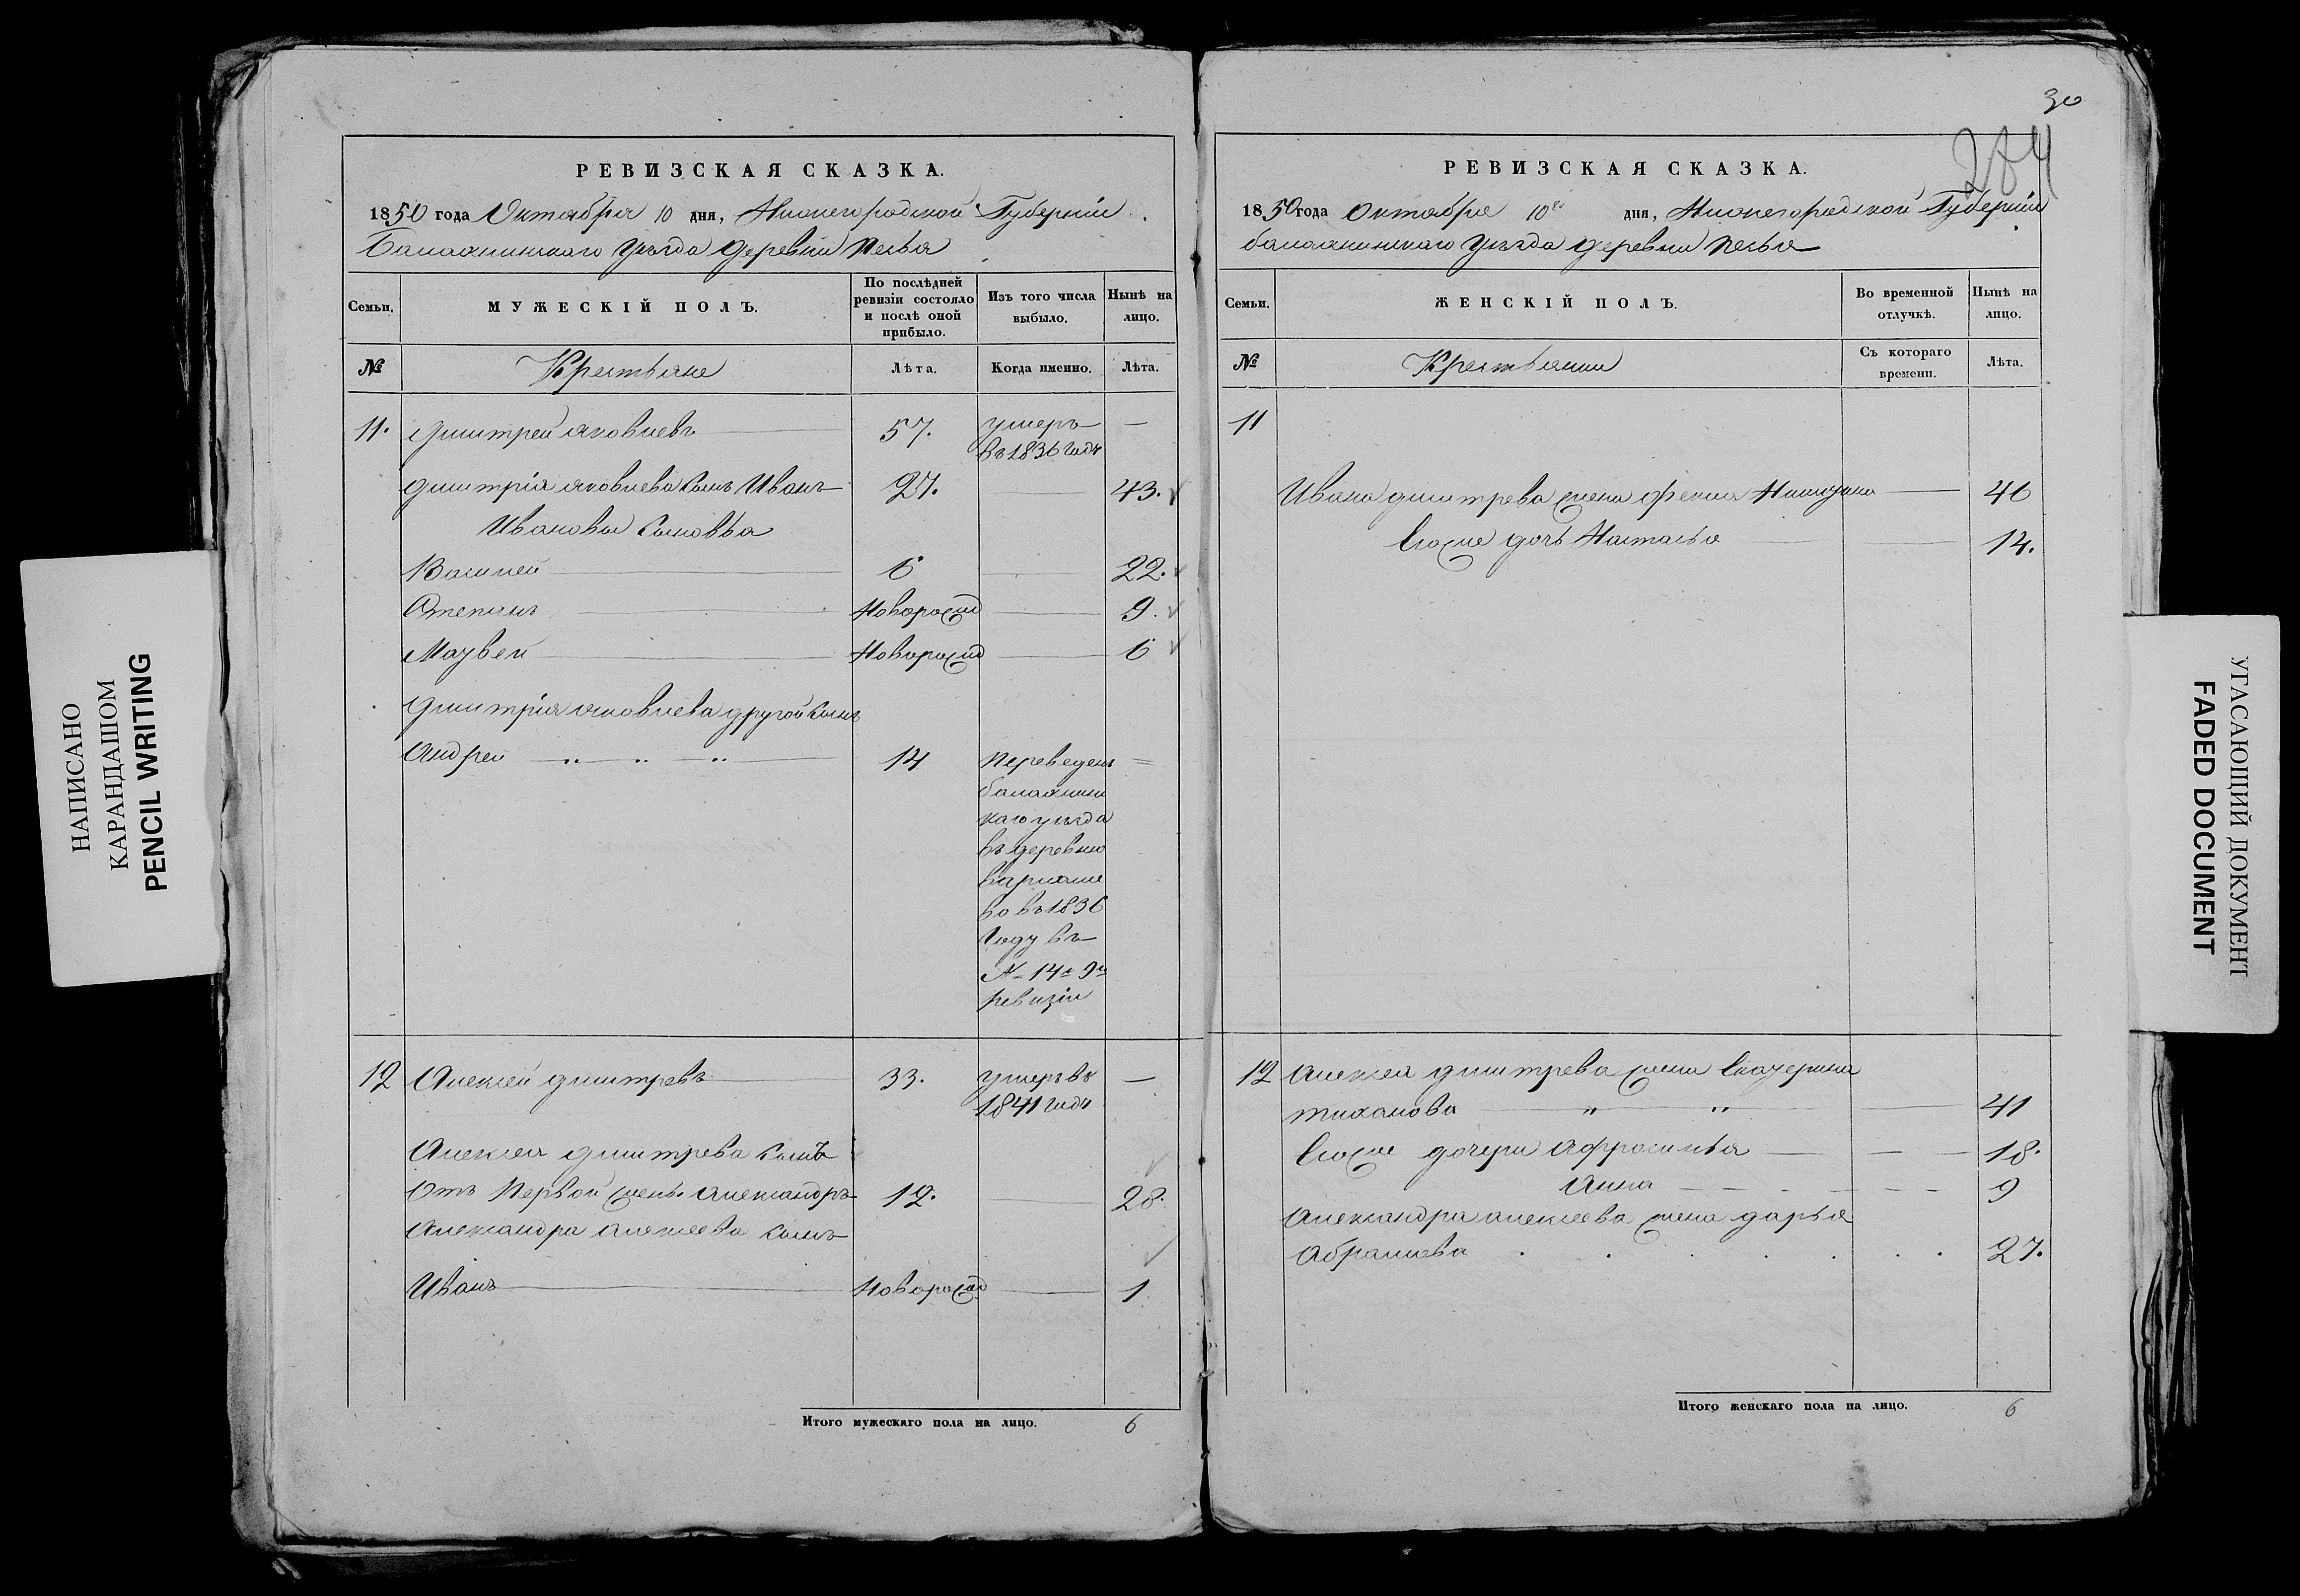 РЕВИЗСКАЯ СКАЗКА.
1850 года Октября 10 дня, Нижегородской Губернiи
Балахнинскаго уѣзда деревни Песья
Семьи.
МУЖЕСКІЙ ПОЛЪ.
По послѣдней ревизіи состояло и послѣ оной прибыло.
Изъ того числа выбыло.
Нынѣ на лицо.
№ Крестьяне Лѣта. Когда именно. Лѣта.
11. Дмитрей яковлевъ 57. умеръ —
въ 1836 годѣ
Дмитрiя яковлева сынъ Иванъ 27. 43.
Ивановы сыновья
Василей 6 22.
Степанъ Новорожд 9.
Матвей Новорожд 6
Дмитрiя яковлева другой сынъ
Андрей 14 переведенъ
балахнинс
каго уѣзда
въ деревню
во въ 1836
году въ
№ 14й 9й
ревизiи
12 Алексей дмитревъ 33. умеръ въ —
1841 годѣ
Алексея дмитрева сынъ
Отъ Первой жены Александръ 12. 28.
Александра алексеева сынъ
Иванъ Новорожд 1
Итого мужескаго пола на лицо. 6
30
284
РЕВИЗСКАЯ СКАЗКА.
1850 года Октября 10го дня, Нижегородской Губернiи
балахнинскаго уѣзда деревни Песья
Семьи.
ЖЕНСКІЙ ПОЛЪ.
Во временной отлучкѣ.
Нынѣ на лицо.
№ Крестьянки Съ котораго времени. Лѣта.
11
Ивана дмитрева жена фекла 46
Ево же дочь Настасья 14.
12 Алексея дмитрева жена Екатерина
тиханова 41
Ево же дочери Афросинья 18.
Анна 9
Александра алексеева жена дарья
Абрамова 27.
Итого женскаго пола на лицо. 6
НАПИСАНО
КАРАНДАШОМ
PENCIL WRITING
УГАСАЮЩИЙ ДОКУМЕНТ
FADED DOCUMENT